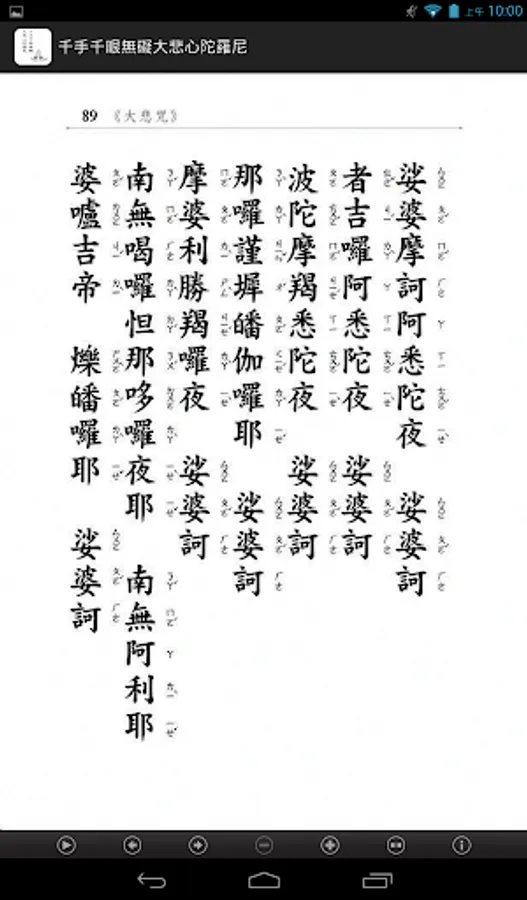 上午 10:00
千手千眼無礙大悲心陀羅尼
89 《大悲咒》
娑婆摩訶阿悉陀夜 娑婆訶
者吉囉阿悉陀夜 娑婆訶
波陀摩羯悉陀夜 娑婆訶
那囉謹墀皤伽囉耶 娑婆訶
摩婆利勝羯囉夜 娑婆訶
南無喝囉怛那哆囉夜耶 南無阿利耶
婆嚧吉帝 爍皤囉耶 娑婆訶